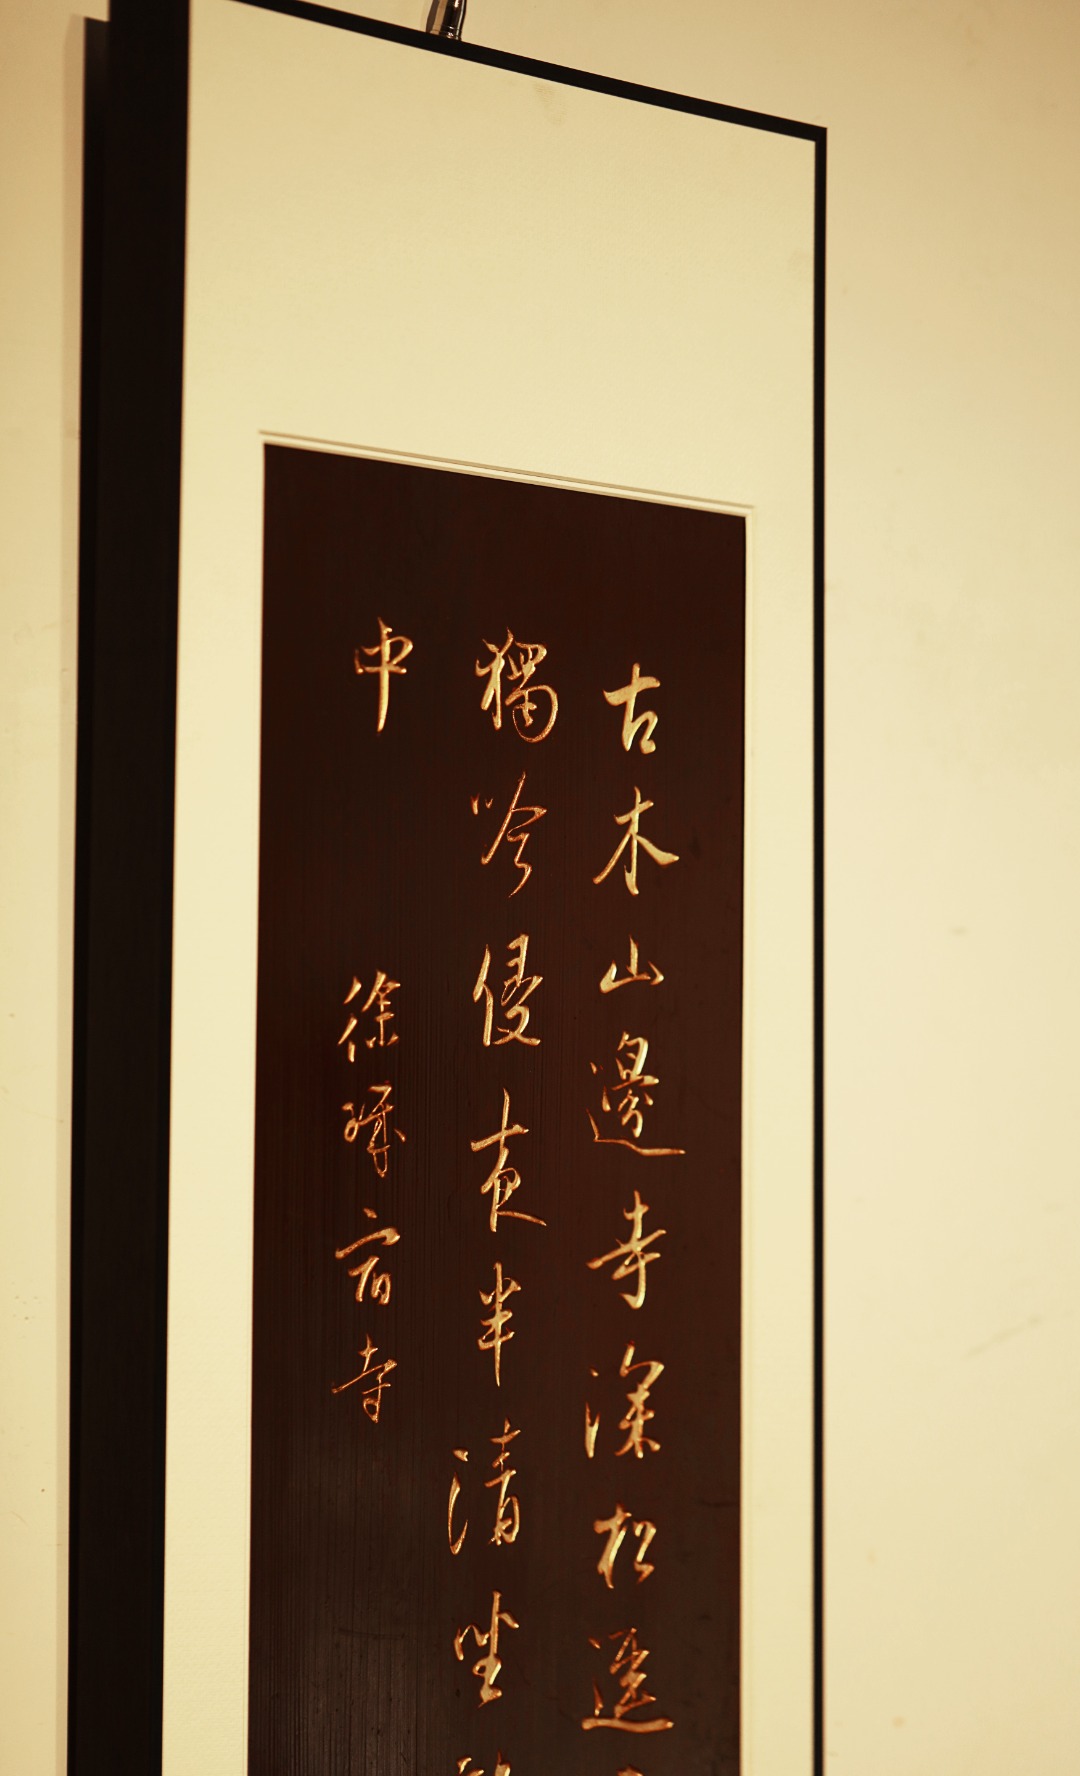 古木山邊寺深松逕
獨吟侵夜半清坐
中 徐璣宿寺